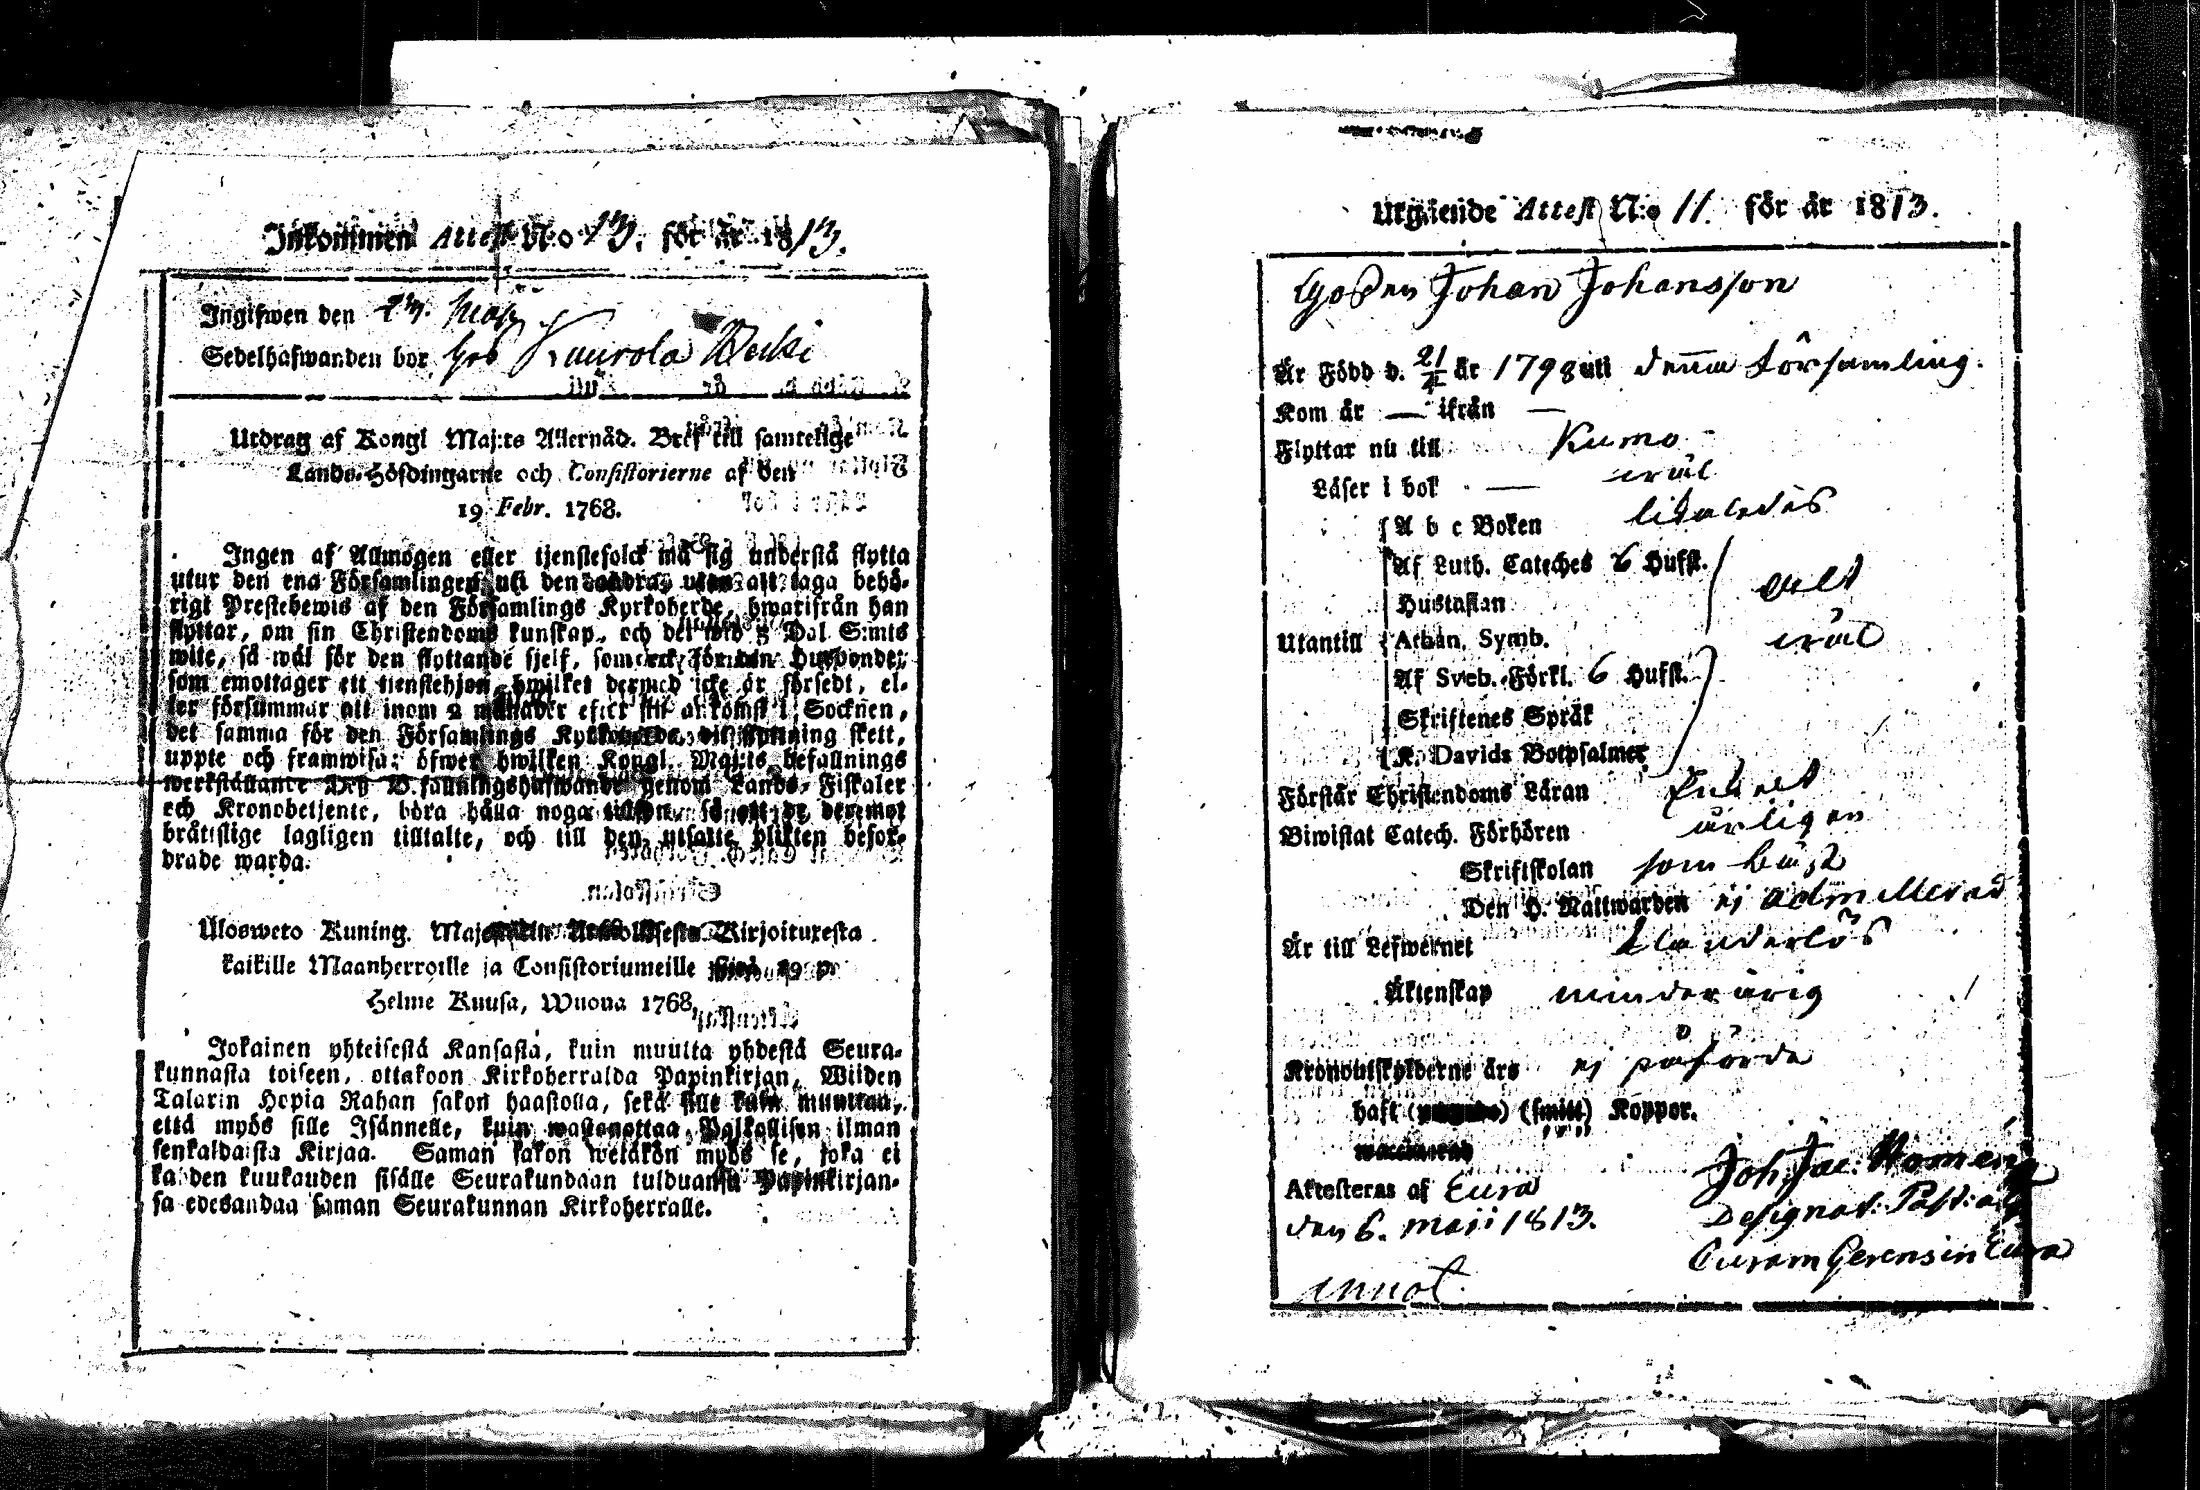 Inkommen Attest No 13. för år 1813.
Ingifwen den 23. Maji
Sedelhafwanden bor hos Kaurola Heiki
Utdrag af Kongl Maj:ts Allernåd. Bref till samtelige
Lands-Höfdingarne och Consistorierne af den
19 Febr. 1768.
Ingen af Allmogen eller tjenstefolck må sig understå flytta
utur den ena Församlingen uti den andra, utan att taga behö-
rigt Prestebewis af den Församlings Kyrkoherde, hwarifrån han
flyttar, om sin Christendoms kunskap, och det wid 5 Dal S:mts
wite, så wäl för den flyttande sjelf, som ock för den Husbonde,
som emottager ett tjenstehjon, hwilket dermed icke är försedt, el-
ler försummar att inom 2 månader efter sin ankomst i Socknen,
det samma för den Församlings Kyrkoherde, dit flyttning skett,
uppte och framwisa; öfwer hwilken Kongl. Maj:ts befallnings
werkställande Dess B.fallningshafwande genom Lands-Fiskaler
och Kronobetjente, böra hålla noga tillsyn, så att de deremot
bråtislige lagligen tilltalte, och till den utsatte plikten befor-
drade warda.
Ulosweto Kuning. Majestetin Kirjoituxesta
kaikille Maanherroille ja Consistoriumeille siitä 19 p.
Helme Kuusa, Wuona 1768.
Jokainen yhteisestä Kansasta, kuin muutta yhdestä Seura-
kunnasta toiseen, ottakoon Kirkoherralda Papinkirjan, Wiiden
Talarin Hopia Rahan sakon haastolla, sekä sille kuin muuttaa,
että myös sille Isännelle, kuin wastanottaa Palkollisen ilman
senkaldaista Kirjaa. Saman sakon wetäkön myös se, joka ei
kahden kuukauden sisälle Seurakundaan tulduansa Papinkirjan-
sa edesandaa saman Seurakunnan Kirkoherralle.
Utgående Attest N:o 11. för år 1813.
Gossen Johan Johansson
Är Född d. 21/4 år 1798 uti denna Församling.
Kom år — ifrån —
Flyttar nu till Kumo
Läser i bok — wäl
A b c Boken litaledes
Af Luth. Cateches 6 Hufst.
Hustaflan
Utantill Athan. Symb. wäl
Af Sveb. Förkl. 6 Hufst.
Skriftenes Språk
K. Davids Botpsalmer
Förstår Christendoms Läran
Biwistat Catech. Förhören årligen
Skriftskolan som bäst
Den H. Nattwarden ej admitterad
Är till Lefwernet klanderlös
Äktenskap minderårig
Kronoutskylderne äro ej påförde
haft (smitt) Koppor.
Attesteras af Eura
den 6. Maji 1813.
Joh. Jac: Homén
Designat: Past: a
Curam Gerens in Eura
annot.